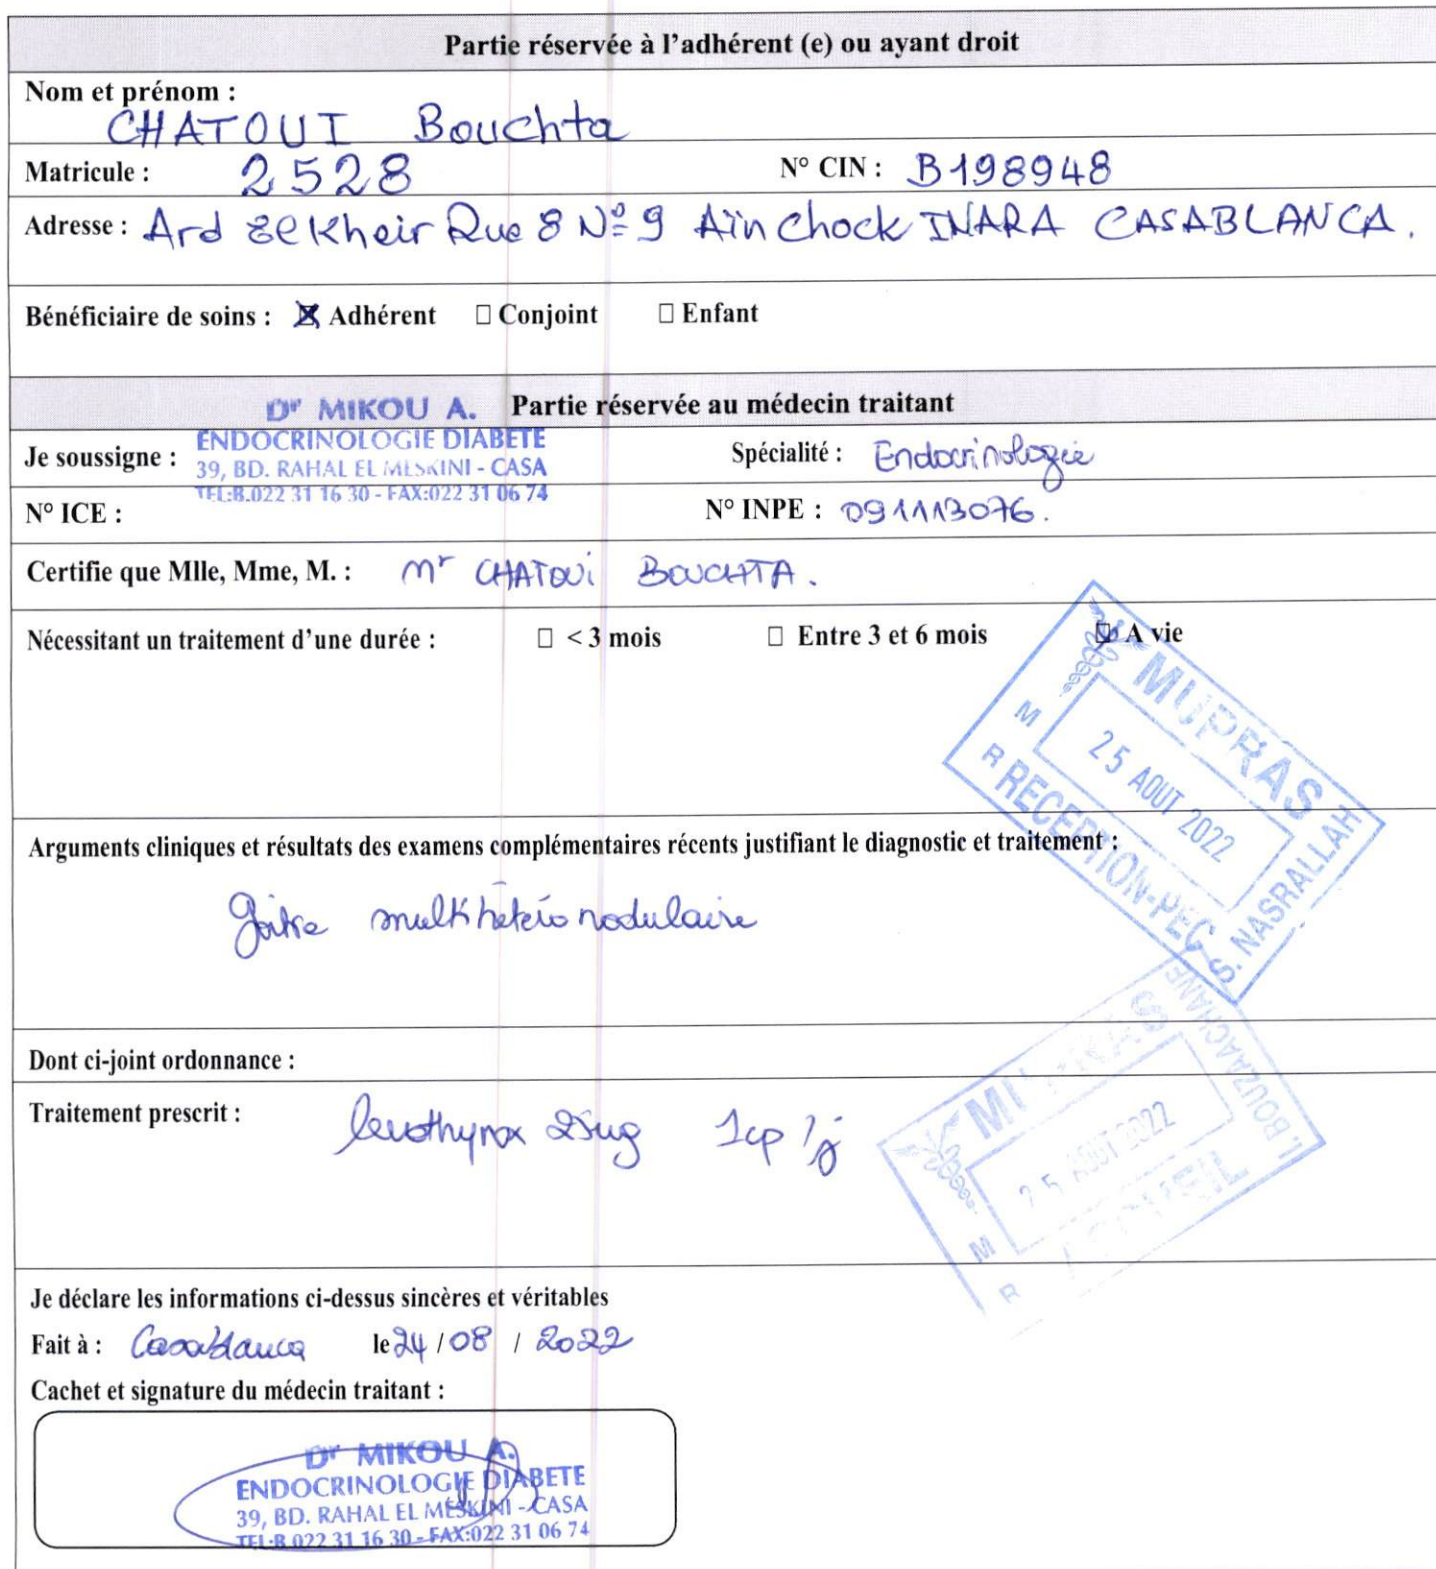 Partie réservée à l'adhérent (e) ou ayant droit
Nom et prénom :
CHATOUI Bouchta
Matricule : 2528 N° CIN : B198948
Adresse : Ard Kheir Rue 8 N° 9 Aïn Chock INARA CASABLANCA.
Bénéficiaire de soins : ☒ Adhérent ☐ Conjoint ☐ Enfant
Dr MIKOU A. Partie réservée au médecin traitant
ENDOCRINOLOGIE DIABETE
Je soussigne : 39, BD. RAHAL EL MESKINI - CASA Spécialité : Endocrinologie
TEL:B.022 31 16 30 - FAX:022 31 06 74
N° ICE : N° INPE : 091113076.
Certifie que Mlle, Mme, M. : Mr CHATOUI BOUCHTA.
Nécessitant un traitement d'une durée : ☐ < 3 mois ☐ Entre 3 et 6 mois ☑ A vie
MUPRAS
M R
25 AOUT 2022
RECEPTION-PEC
S. NASRALLAH
Arguments cliniques et résultats des examens complémentaires récents justifiant le diagnostic et traitement :
goitre multihétéronodulaire
Dont ci-joint ordonnance :
Traitement prescrit : levothyrox 25ug 1cp/j
MUPRAS
M R
25 AOUT 2022
ACCUEIL
I. BOUZAACHANE
Je déclare les informations ci-dessus sincères et véritables
Fait à : Casablanca le 24 / 08 / 2022
Cachet et signature du médecin traitant :
Dr MIKOU A.
ENDOCRINOLOGIE DIABETE
39, BD. RAHAL EL MESKINI - CASA
TEL:B.022 31 16 30 - FAX:022 31 06 74